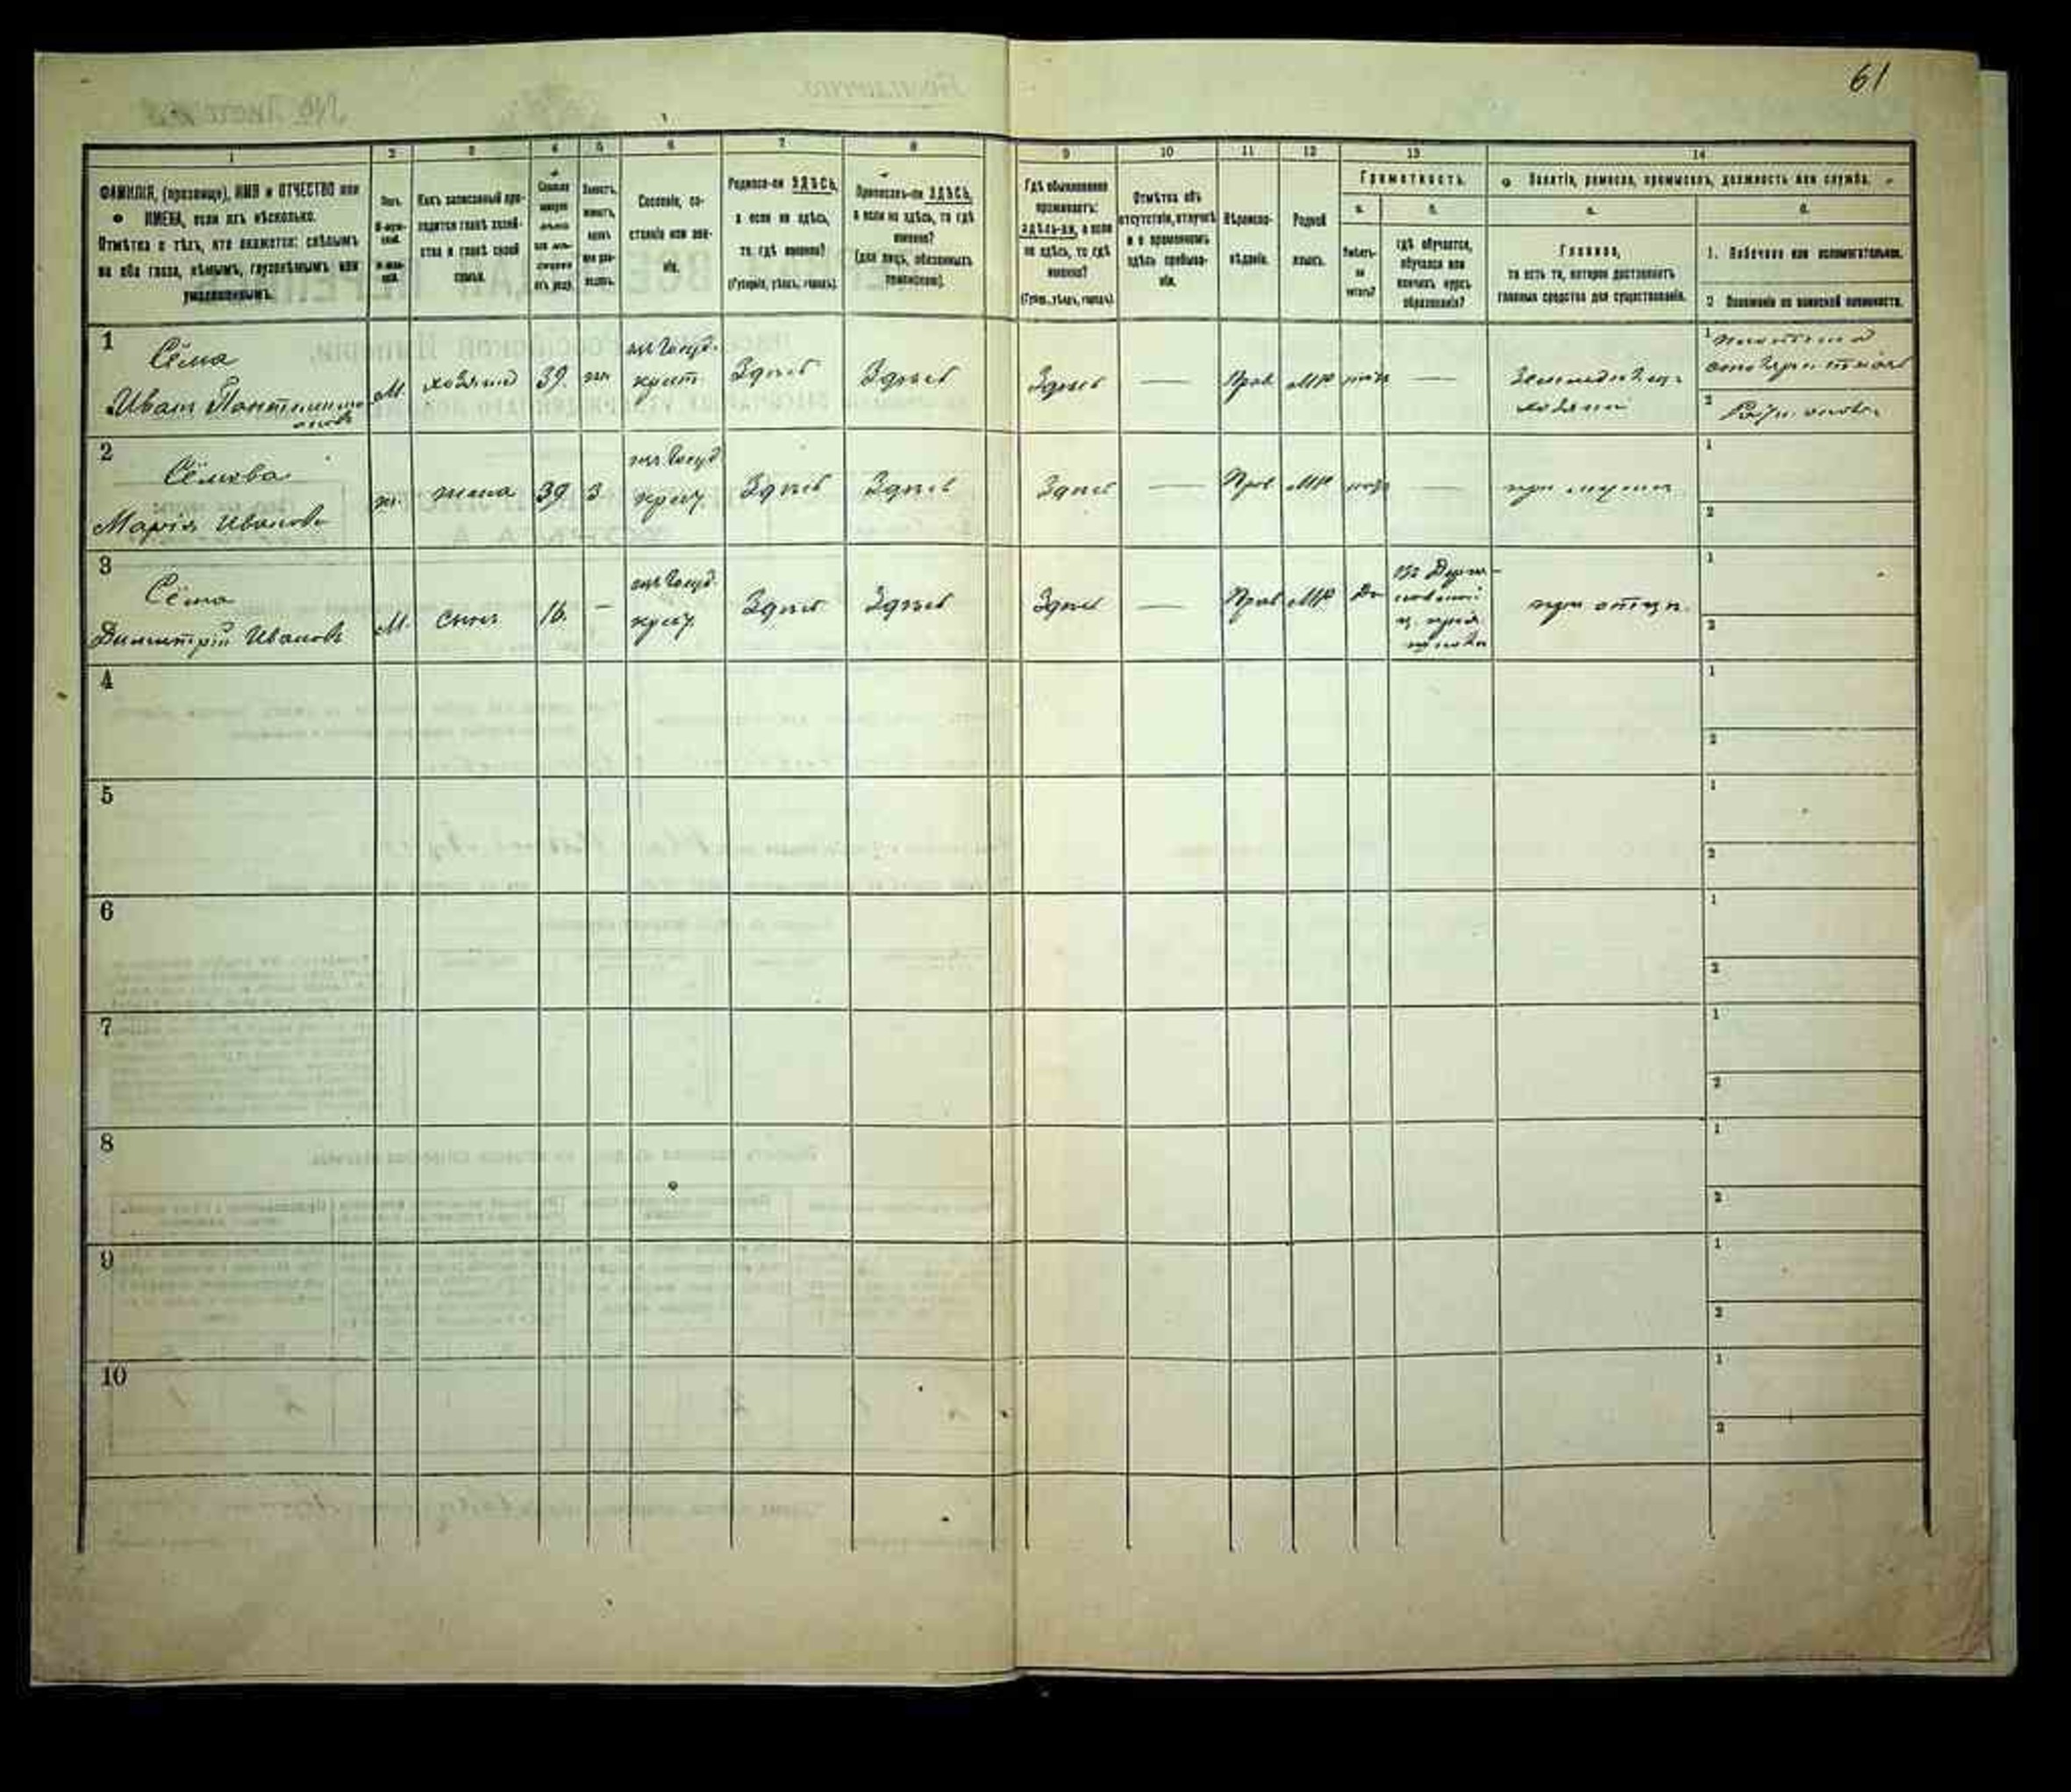 61
1
2
3
4
5
6
7
8
9
10
11
12
13
14
ФАМИЛІЯ, (прозвище), ИМЯ и ОТЧЕСТВО или
ИМЕНА, если ихъ нѣсколько.
Отмѣтка о тѣхъ, кто окажется: слѣпымъ
на оба глаза, нѣмымъ, глухонѣмымъ или
умалишеннымъ.
Полъ.
Какъ записанный при-
ходится главѣ хозяй-
ства и главѣ своей
семьи.
Сословіе, со-
стояніе или зва-
ніе.
Родился-ли ЗДѢСЬ,
а если не здѣсь,
то гдѣ именно?
(Губернія, уѣздъ, городъ).
Приписанъ-ли ЗДѢСЬ,
а если не здѣсь, то гдѣ
именно?
(для лицъ, обязанныхъ
припискою).
Гдѣ обыкновенно
проживаетъ:
здѣсь-ли, а если
не здѣсь, то гдѣ
именно?
(Губ., уѣздъ, городъ).
Отмѣтка объ
отсутствіи, отлучкѣ
и о временномъ
здѣсь пребыва-
ніи.
Вѣроиспо-
вѣданіе.
Родной
языкъ.
Грамотность.
а.
б.
Умѣетъ-
ли
читать?
гдѣ обучается,
обучался или
кончилъ курсъ
образованія?
Занятіе, ремесло, промыселъ, должность или служба.
а.
б.
Главное,
то есть то, которое доставляетъ
главныя средства для существованія.
1. Побочное или вспомогательное.
2 Положеніе по воинской повинности.
1
Сёма
Иванъ
М.
хозяинъ
39.
жн
изъ Госуд.
крест.
Здѣсь
Здѣсь
Здѣсь
—
Прав
мр
—
хозяинъ
1
2
2
Сёмова
Марія Иванова
ж.
жена
39
З
изъ Госуд
крест
Здѣсь
Здѣсь
Здѣсь
—
Прав
мр
—
при мужѣ
1
2
3
Сёма
Димитрій Ивановъ
М.
сынъ
16.
—
изъ Госуд.
крест.
Здѣсь
Здѣсь
Здѣсь
—
Прав
мр
Да
при отцѣ
1
2
4
1
2
5
1
2
6
1
2
7
1
2
8
1
2
9
1
2
10
1
2